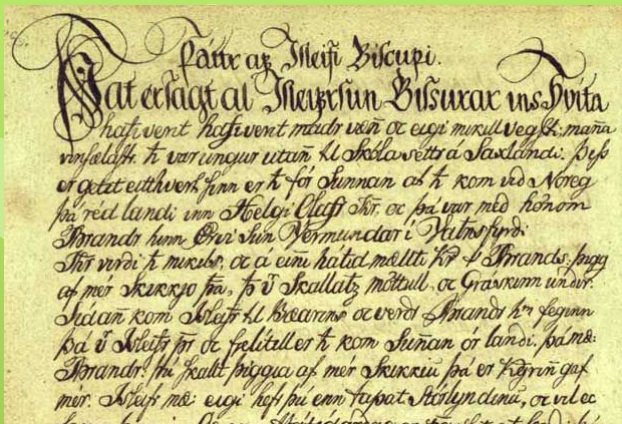 Þáttr af Isleifi Biscupi.
Þat er sagt at Isleifr sun Gissurar ins Hvita
hafi vent hafi vent madr væn oc eigi mikill vegst: mana
vinsældstr. h var ungur utan til Skóla settr á Saxlandi: Þess
er getit eitthvert sinn er h fór Sunnan at h kom vid Noreg
þá réd landi inn Helgi Olafr Kr. oc þá var med hönom
Brandr hinn Örvi Sun Vermundar í Vatnsfirdi
Kr virdi h mikils, oc a eini hatid mællti Kr Brands: þigg
af mér Skikkjo þa, þ v Skallatz möttull, oc Gráskinn undir.
Sidan kom Isleifr til Bæarins oc verdr Brandr hm feginn
þá v Isleifr pr oc felitill er h kom Sunan ór landi. þá mæ:
Brandr: þu skallt þiggia af mér Skikkiu þá er Kgrin gaf
mér. Isleifr mæ: eigi hefr þú enn tapat Stórlyndinu, oc vil ec